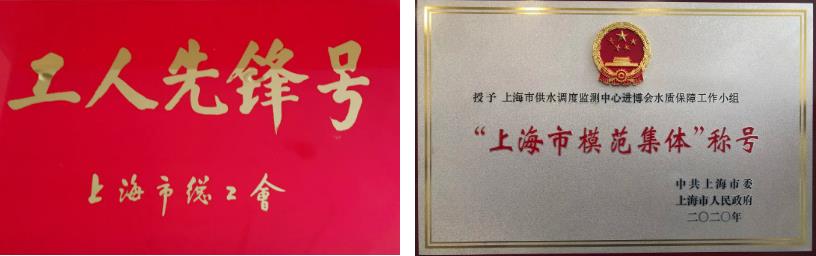 工人先锋号
上海市総工會
授予 上海市供水调度监测中心进博会水质保障工作小组
“上海市模范集体”称号
中共上海市委
上海市人民政府
二〇二〇年